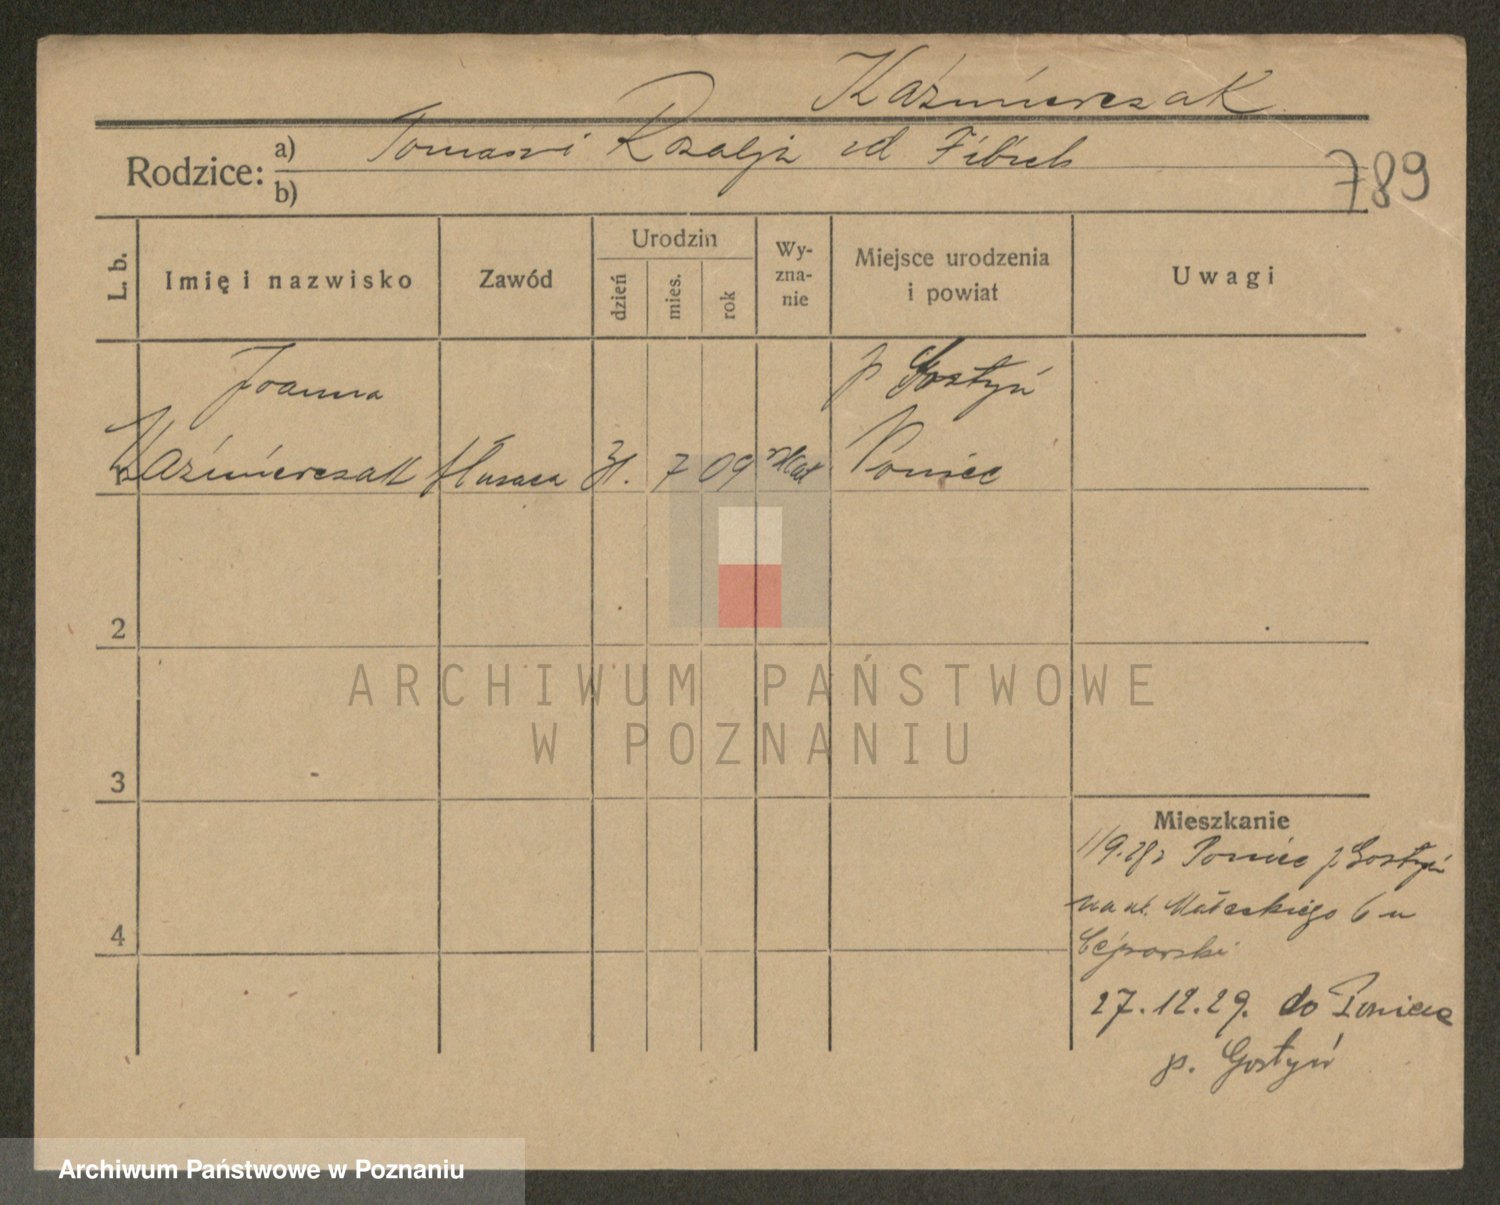 Kaźmierczak
Rodzice: a) Tomasz i Rozalja od Fibich
b)
789
L. b.
Imię i nazwisko
Zawód
Urodzin
dzień
mies.
rok
Wy-
zna-
nie
Miejsce urodzenia
i powiat
Uwagi
Joanna
p Gostyń
Kaźmierczak
służąca
31. 7 09
Poniec
2
3
4
Mieszkanie
Poniec p Gostyń
na ul. Małeckiego 6 u
27.12.29. do Poniece
p. Gostyń
ARCHIWUM PAŃSTWOWE
W POZNANIU
Archiwum Państwowe w Poznaniu